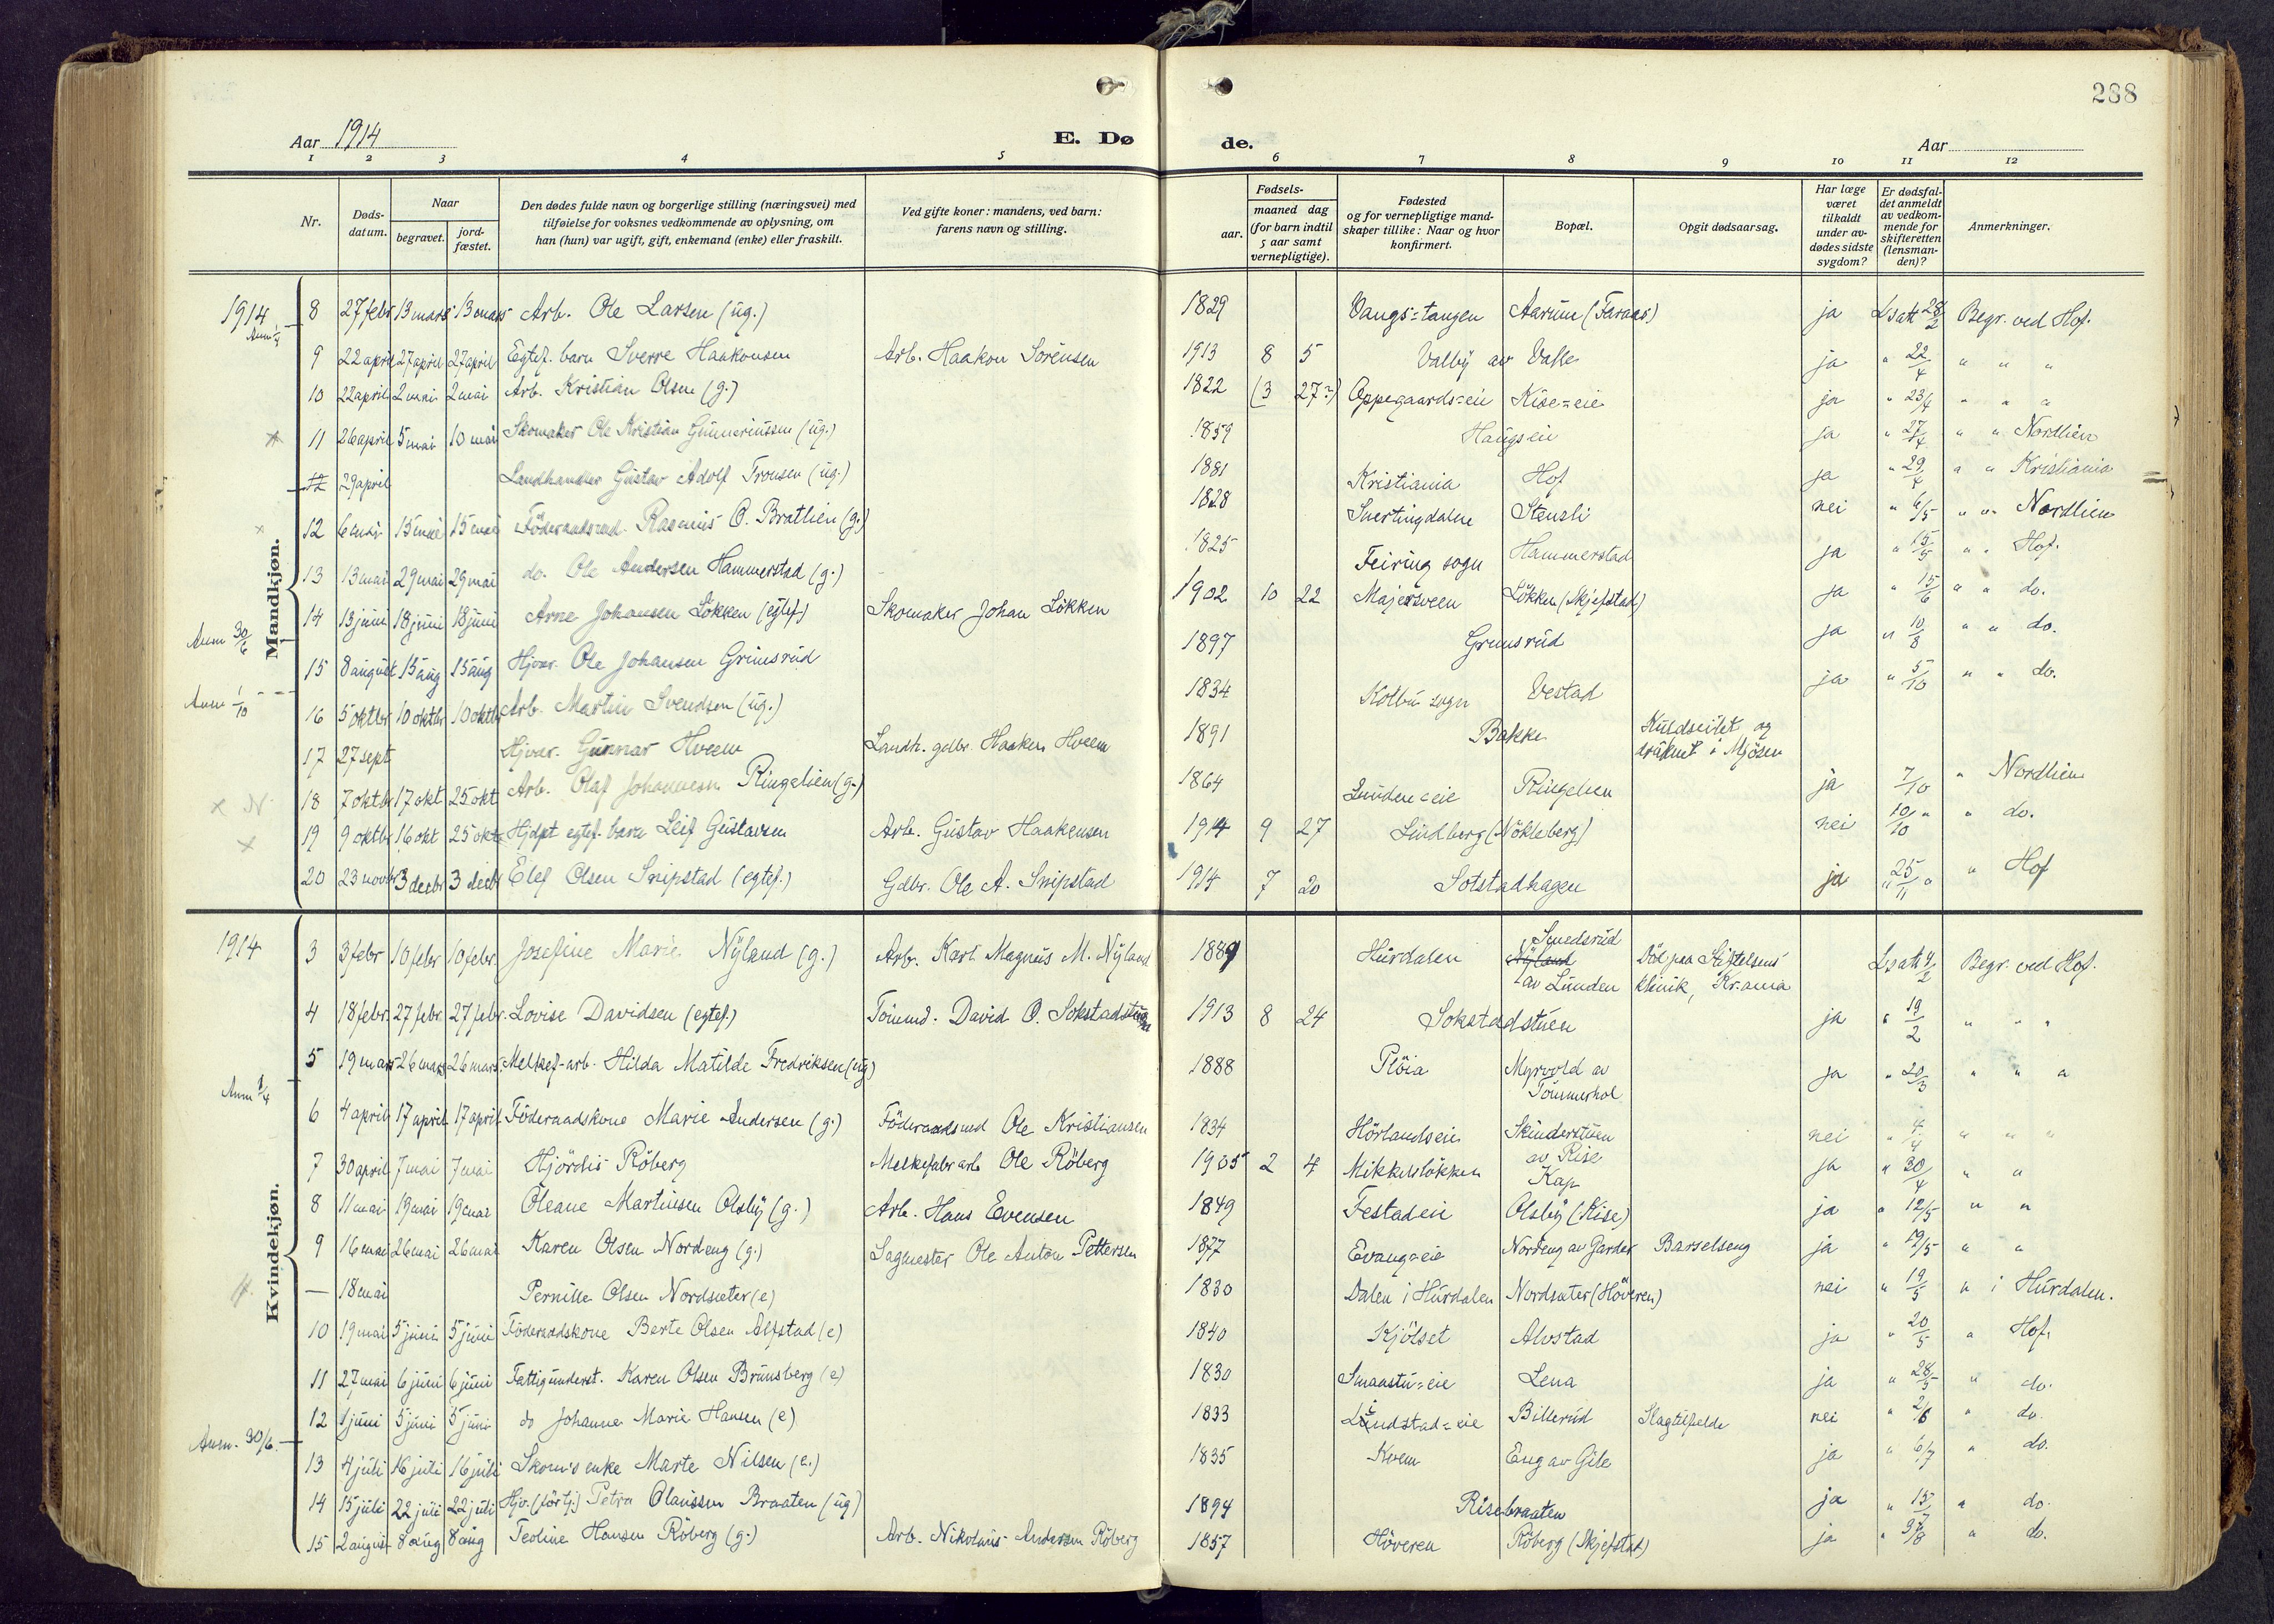 288
Aar 1914
E. Dø de.
Aar
1 2 3 4 5 6 7 8 9 10 11 12
Nr.
Døds-datum.
Naar
begravet.
jord-fæstet.
Den dødes fulde navn og borgerlige stilling (næringsvei) med
tilføielse for voksnes vedkommende av oplysning, om
han (hun) var ugift, gift, enkemand (enke) eller fraskilt.
Ved gifte koner: mandens, ved barn:
farens navn og stilling.
Fødsels-
aar.
maaned dag
(for barn indtil
5 aar samt
vernepligtige).
Fødested
og for vernepligtige mand-
skaper tillike: Naar og hvor
konfirmert.
Bopæl.
Opgit dødsaarsag.
Har læge
været
tilkaldt
under av-
dødes sidste
sygdom?
Er dødsfal-
det anmeldt
av vedkom-
mende for
skifteretten
(lensman-
den)?
Anmerkninger.
Mandkjøn.
1914 8 27 febr 13 mars 13 mars Arb. Ole Larsen (ug.) 1829 Vangs=tangen Aarum (Faraas) ja Lsatt 28/2 Begr. ved Hof.
9 22 april 27 april 27 april Egtef. barn Sverre Haakonsen Arb. Haakon Sörensen 1913 8 5 Valby av Valle ja " 22/4 " " "
10 22 april 2 mai 2 mai Arb. Kristian Olsen (g.) 1822 (3 27?) Oppegaards=eie Kise=eie ja " 23/4 " " "
11 26 april 5 mai 10 mai Skomaker Ole Kristian Gunneriussen (ug.) 1859 Haugseie ja " 27/4 " " Nordlien
12 29 april Landhandler Gustav Adolf Fronsen (ug.) 1881 Kristiania Hof ja " 29/4 " " Kristiania
12 6 mai 15 mai 15 mai Föderaadsmd. Rasmus O. Brattlien (g.) 1828 Snertingdalen Stensli nei " 6/5 " " Nordlien
13 13 mai 29 mai 29 mai do. Ole Andersen Hammerstad (g.) 1825 Feiring sogn Hammerstad ja " 15/5 " " Hof.
14 13 juni 18 juni 18 juni Arne Johansen Lökken (egtef.) Skomaker Johan Lökken 1902 10 22 Majersveen Lökken (Skjefstad) ja " 15/6 " " do.
Anm 30/6
15 8 august 15 aug 15 aug Hjvær. Ole Johansen Grimsrud 1897 Grimsrud ja " 10/8 " " do.
Anm 1/10
16 5 oktbr 10 oktbr 10 oktbr Arb. Martin Svendsen (ug.) 1834 Kolbu sogn Vestad ja " 5/10 " " do.
17 27 sept Hjvær. Gunnar Hveem Landh. gdbr. Haaken Hveem 1891 Bakke Kuldseilet og
druknet i Mjösen
18 7 oktbr 17 okt 25 okt Arb. Olaf Johannesen Ringelien (g.) 1864 Lunden=eie Ringelien ja 7/10 " Nordlien
19 9 oktbr 16 okt 25 okt Hjdpt egtef. barn Leif Gustavsen Arb. Gustav Haakensen 1914 9 27 Lindberg (Nökleberg) nei 10/10 " " do.
20 23 novbr 3 decbr 3 decbr Elef Olsen Snipstad (egtef.) Gdbr. Ole A. Snipstad 1914 7 20 Sotstadhagen ja " 25/11 " " Hof
Kvindekjøn.
1914 3 3 febr 10 febr 10 febr. Josefine Marie Nyland (g.) Arb. Karl Magnus M. Nyland 1889 Hurdalen Smedsrud
Nyland
av Lunden Död paa Stiftelsens
klinik, Kr.ania Lsatt 4/2 Begr. ved Hof.
4 18 febr. 27 febr. 27 febr. Lovise Davidsen (egtef.) Tömmd. David O. Sokstadstuen 1913 8 24 Sokstadstuen ja " 19/2 " " "
5 19 mars 26 mars 26 mars. Melkef-arb. Hilda Matilde Fredriksen (ug) 1888 Plöia Myrvold av
Tömmerhol ja " 20/3 " " "
6 4 april 17 april 17 april Föderaadskone Marie Andersen (g.) Föderaadsmd Ole Kristiansen 1834 Hörlandseie Skinderstuen
av Rise nei " 4/4 " " "
7 30 april 7 mai 7 mai Hjördis Röberg Melkefabr arb Ole Röberg 1905 2 4 Mikkelslökken Kap ja " 30/4 " "
8 11 mai 19 mai 19 mai Oleane Martinsen Olsby (g.) Arb. Hans Evensen 1849 Festadeie Olsby (Kise) ja " 12/5 " "
9 16 mai 26 mai 26 mai Karen Olsen Nordeng (g.) Sagmester Ole Anton Pettersen 1877 Evang=eie Nordeng av Garder Barselseng ja " 19/5 " "
— 18 mai Pernille Olsen Nordsæter (e) 1830 Dalen i Hurdalen Nordsæter (Höveren) nei " 19/5 " i Hurdalen.
10 19 mai 5 juni 5 juni Föderaadskone Berte Olsen Alfstad (e) 1840 Kjölset Alvstad ja " 20/5 " Hof.
11 27 mai 6 juni 6 juni Fattigunderst. Karen Olsen Brunsberg (e) 1830 Smaastu=eie Lena ja " 28/5 " do.
12 1 juni 5 juni 5 juni do Johanne Marie Hansen (e) 1833 Lundstad=eie Billerud Slagtilfælde nei " 2/6 " do.
Anm. 30/6.
13 4 juli 16 juli 16 juli Skom's enke Marte Nilsen (e.) 1835 Kvem Eng av Gile ja " 6/7 " do.
14 15 juli 22 juli 22 juli Hjv. (förtj.) Petra Olaussen Braaten (ug) 1894 Risebraaten ja " 15/7 " do.
15 2 august 8 aug 8 aug Teoline Hansen Röberg (g.) Arb. Nikolaus Andersen Röberg 1857 Höveren Röberg (Skjefstad) ja " 3/8 " do.